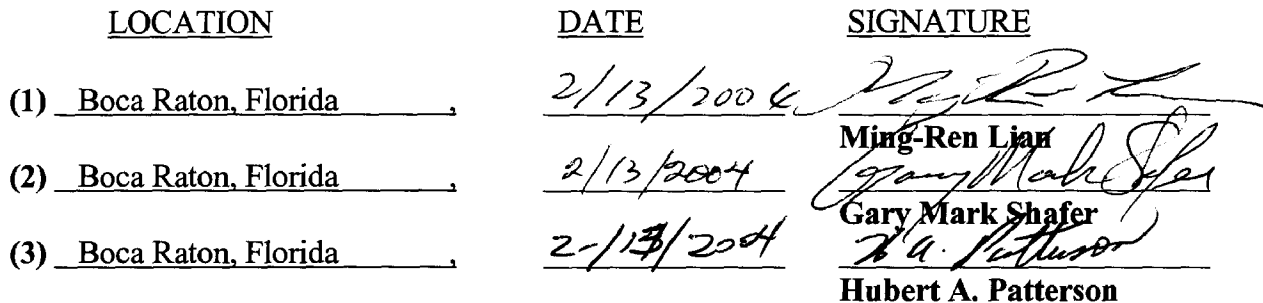 LOCATION DATE SIGNATURE
(1) Boca Raton, Florida , 2/13/2004
Ming-Ren Lian
(2) Boca Raton, Florida , 2/13/2004 Gary Mark Shafer
Gary Mark Shafer
(3) Boca Raton, Florida , 2-/13/2004 H. A. Patterson
Hubert A. Patterson